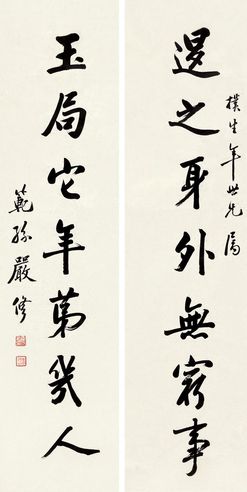 退之身外無窮事
樸生年世先屬
玉局它年第幾人
範孫嚴修